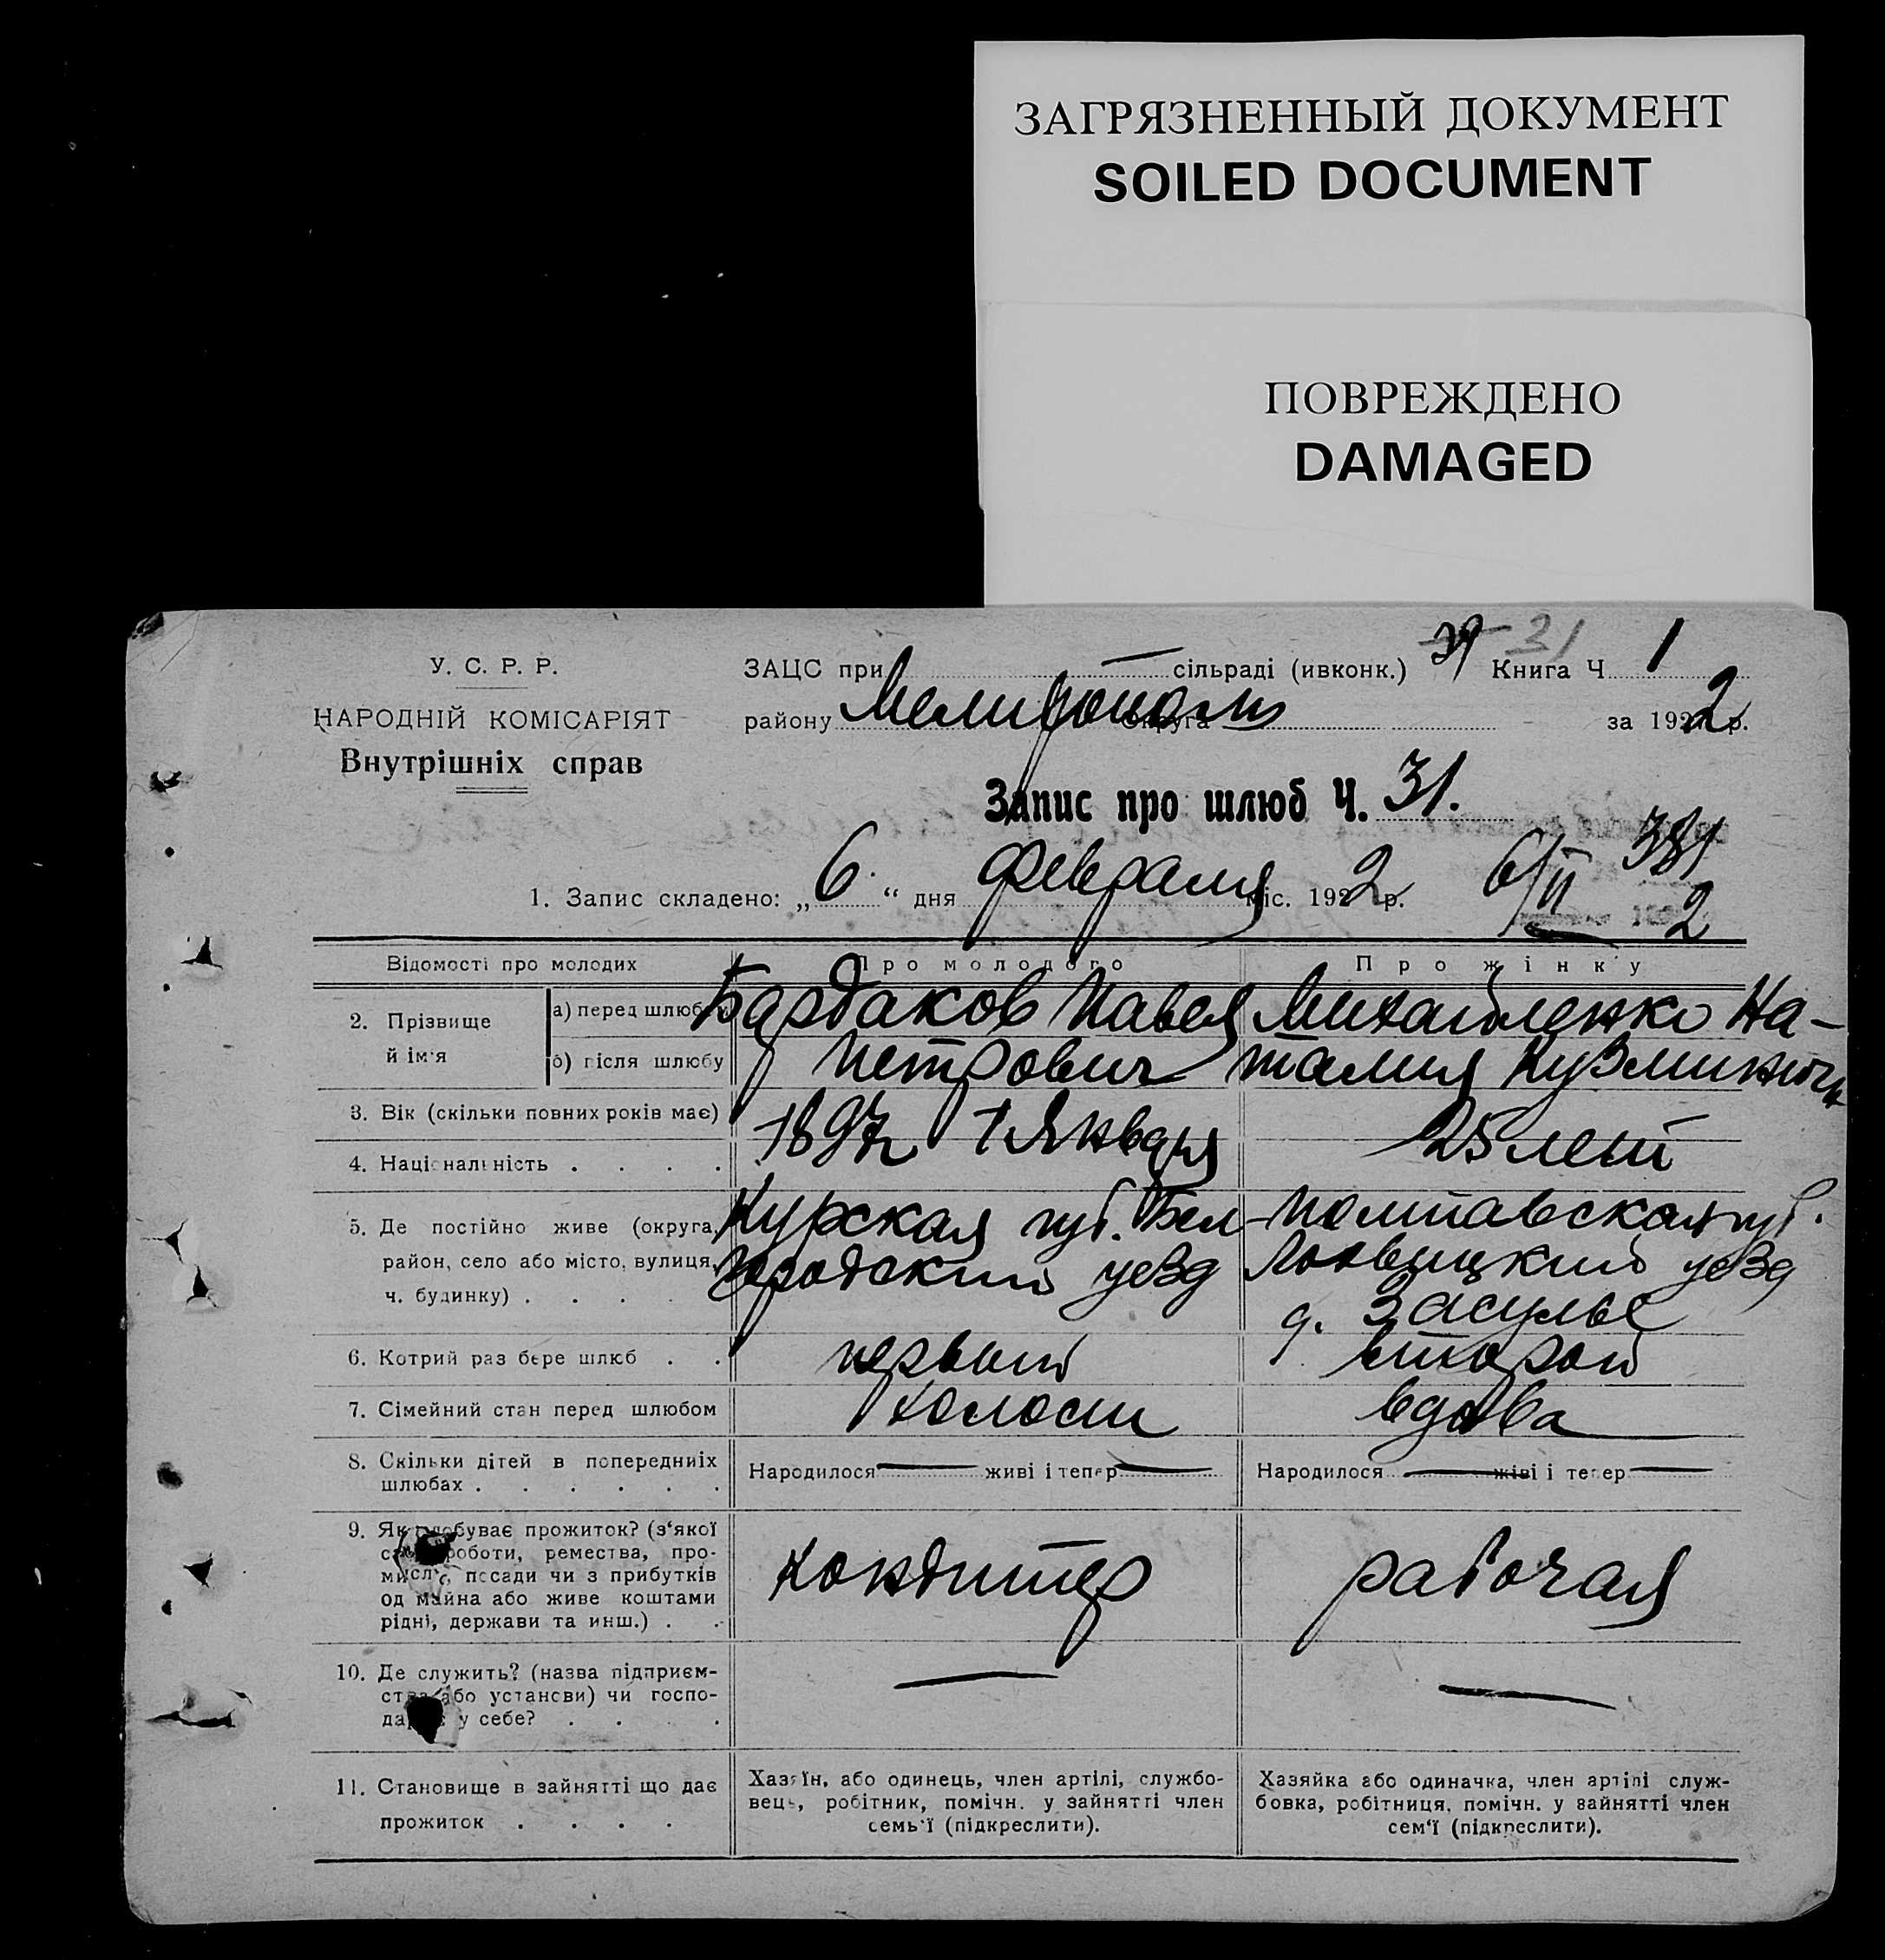 ЗАГРЯЗНЕННЫЙ ДОКУМЕНТ
SOILED DOCUMENT
ПОВРЕЖДЕНО
DAMAGED
У. С. Р. Р.
НАРОДНІЙ КОМІСАРІЯТ
Внутрішніх справ
ЗАЦС при — сільраді (ивконк.) 31 Книга Ч. 1
району Мелитополь округа за 1922 р.
Запис про шлюб Ч. 31.
381
1. Запис складено: „6“ дня февраля міс. 1922 р. 6/II 2
Відомості про молодих Про молодого Про жінку
2. Прізвище й ім'я
а) перед шлюбом Бардаков Павел Михайленко На-
б) після шлюбу Петрович талия Кузминична
3. Вік (скільки повних років має) 1897 1 Января 25 лет
4. Національність . . . .
5. Де постійно живе (округа, Курская губ. Бел- Полтавская губ.
район, село або місто, вулиця, городский уезд Лохвицкий уезд
ч. будинку) . . . . д. Засулье
6. Котрий раз бере шлюб . . первый второй
7. Сімейний стан перед шлюбом холост вдова
8. Скільки дітей в попередниіх
шлюбах . . . . . .
Народилося — живі і тепер — Народилося — живі і тепер —
9. Як здобуває прожиток? (з'якої
роботи, ремества, про-
мислу, посади чи з прибутків
од майна або живе коштами
рідні, держави та инш.) . .
кондитер рабочая
10. Де служить? (назва підприєм-
ства або установи) чи госпо-
дарює у себе? . . . .
— —
11. Становище в зайнятті що дає
прожиток . . . .
Хазяїн, або одинець, член артілі, службо-
вець, робітник, помічн. у зайнятті член
семь'ї (підкреслити).
Хазяйка або одиначка, член артілі служ-
бовка, робітниця, помічн. у зайнятті член
сем'ї (підкреслити).